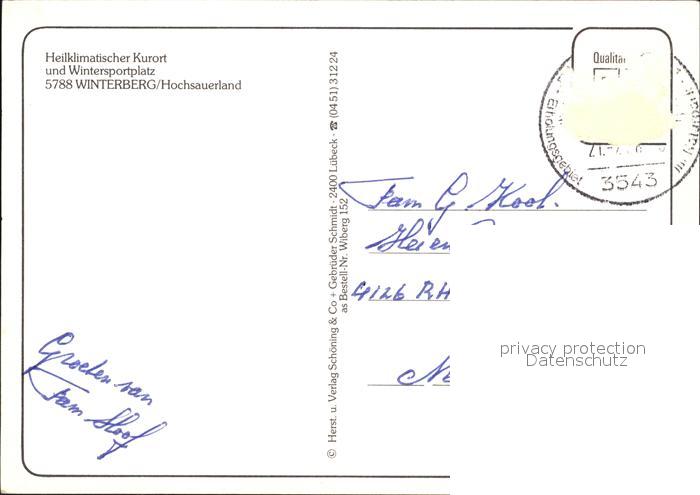 Heilklimatischer Kurort
und Wintersportplatz
5788 WINTERBERG/Hochsauerland
© Herst. u. Verlag Schöning & Co + Gebrüder Schmidt · 2400 Lübeck · ☎ (04 51) 3 12 24
as Bestell-Nr. Wiberg 152
Qualität
Erholungsgebiet
3543
Fam G Kool.
4126 RH
Ne
privacy protection
Datenschutz
Groeten van
Fam Sloof